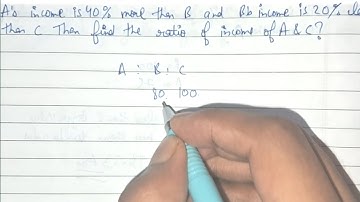 A's income is 40% more then B and B's income is 20%
then C Then find the ratio of income of A & C?
A : B : C
80 100